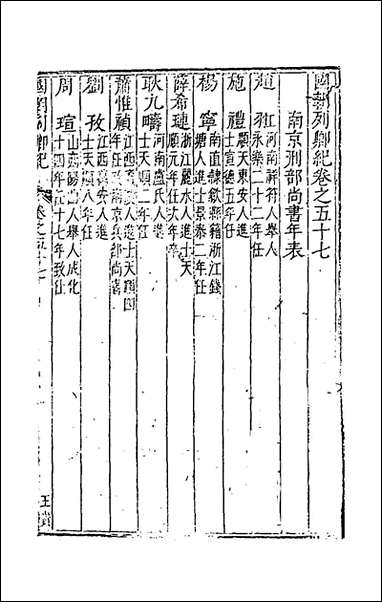 國朝列卿紀卷之五十七
南京刑部尚書年表
趙羾 河南祥符人舉人
永樂二十二年任
施禮 順天東安人進
士宣德五年任
楊寧 南直隷歙縣籍浙江錢
塘人進士景泰二年任
薛希璉 浙江麗水人進士天
順元年任
耿九疇 河南盧氏人進
士天順二年任
蕭惟禎 江西人進士天順四
年任改南京兵部尚書
劉孜 江西萬安人進
士天順八年任
周瑄 山西陽曲人舉人成化
十四年任十七年致仕
國朝列卿紀
卷之五十七